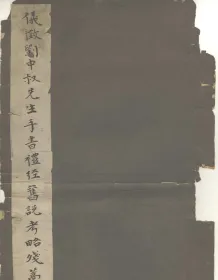 儀徵劉申叔先生手書禮經舊說考略殘稾